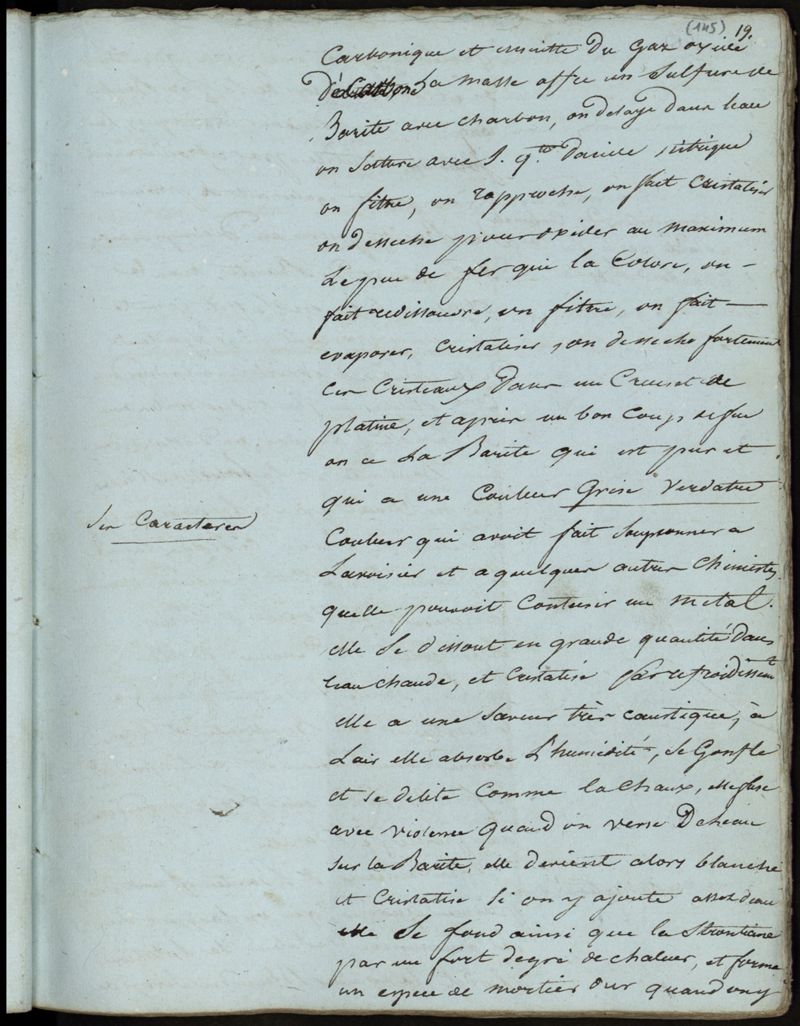 (145) 19.
Carbonique et ensuitte du Gaz oxide
De Carbone La Masse offre un Sulfure de
Barite avec charbon, on delaye dans leau
on Sature avec S. qte. d'acide nitrique
on filtre, on rapproche, on fait Cristaliser
on desseche pour oxider au maximum
Le peu de fer qui la Colore, on
fait redissoudre, on filtre, on fait
evaporer, Cristaliser, on desseche fortement
Ces Cristeaux dans un Creuset de
platine, et après un bon Coup de feu
on a La Barite qui est pure et
qui a une Couleur Grise Verdatre
Ses Caracteres
Couleur qui avoit fait Soupsonner a
Lavoisier et a quelques autres Chimistes
quelle pouvoit Contenir un metal.
elle Se dissout en grande quantité dans
leau chaude, et Cristalise par refroidissemt
elle a une Saveur très caustique, à
Lair elle absorbe L'humidité, Se Gonfle
et se delite Comme la Chaux,
avec violence quand on verse De leau
Sur la Barite, elle devient alors blanche
et Cristalise Si on y ajoute assez deau
elle Se fond ainsi que la Strontiane
par un fort degré de chaleur, et forme
un espece de mortier dur quand on y